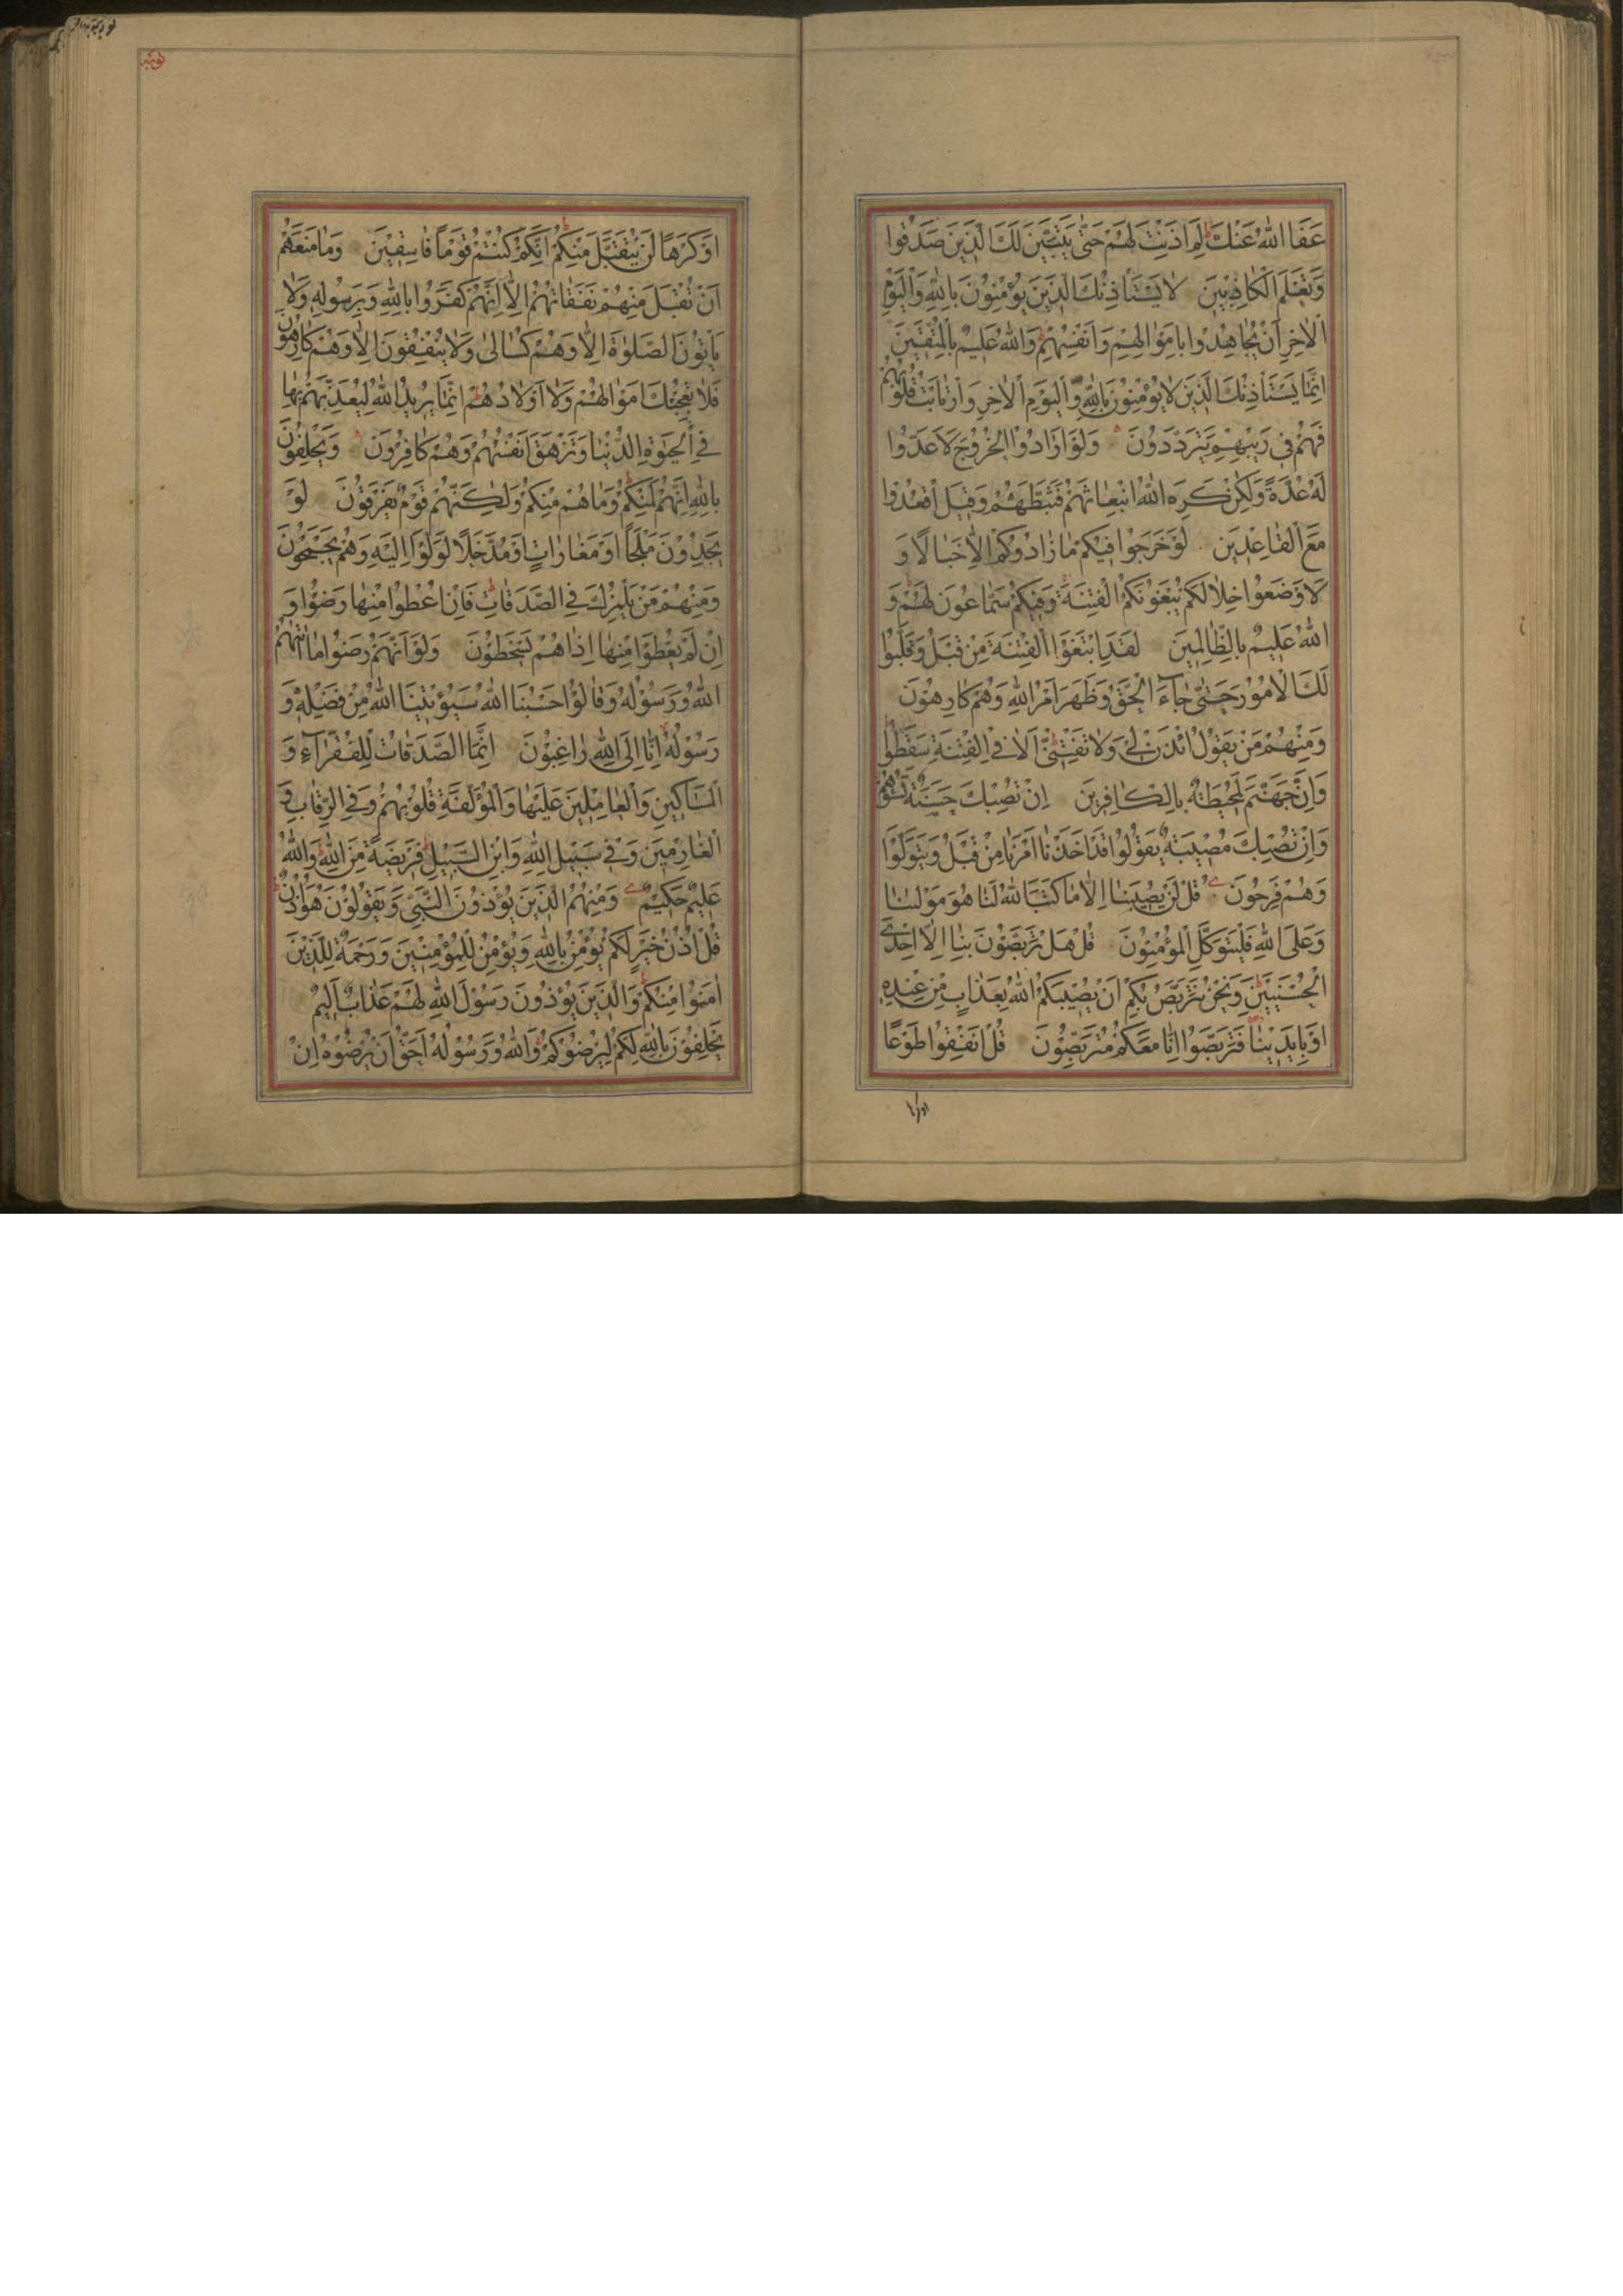 عَفَا اللهُ عَنْكَ لِمَ اَذِنْتَ لَهُمْ حَتّٰى يَتَبَيَّنَ لَكَ الَّذِينَ صَدَقُوا
وَتَعْلَمَ الْكَاذِبِينَ لَا يَسْتَأْذِنُكَ الَّذِينَ يُؤْمِنُونَ بِاللهِ وَالْيَوْمِ
الْاٰخِرِ اَنْ يُجَاهِدُوا بِاَمْوَالِهِمْ وَاَنْفُسِهِمْ وَاللهُ عَلِيمٌ بِالْمُتَّقِينَ
اِنَّمَا يَسْتَأْذِنُكَ الَّذِينَ لَا يُؤْمِنُونَ بِاللهِ وَالْيَوْمِ الْاٰخِرِ وَارْتَابَتْ قُلُوبُهُمْ
فَهُمْ فِي رَيْبِهِمْ يَتَرَدَّدُونَ وَلَوْ اَرَادُوا الْخُرُوجَ لَاَعَدُّوا
لَهُ عُدَّةً وَلٰكِنْ كَرِهَ اللهُ انْبِعَاثَهُمْ فَثَبَّطَهُمْ وَقِيلَ اقْعُدُوا
مَعَ الْقَاعِدِينَ لَوْ خَرَجُوا فِيكُمْ مَا زَادُوكُمْ اِلَّا خَبَالًا وَ
لَاَوْضَعُوا خِلَالَكُمْ يَبْغُونَكُمُ الْفِتْنَةَ وَفِيكُمْ سَمَّاعُونَ لَهُمْ وَ
اللهُ عَلِيمٌ بِالظَّالِمِينَ لَقَدِ ابْتَغَوُا الْفِتْنَةَ مِنْ قَبْلُ وَقَلَّبُوا
لَكَ الْاُمُورَ حَتّٰى جَاءَ الْحَقُّ وَظَهَرَ اَمْرُ اللهِ وَهُمْ كَارِهُونَ
وَمِنْهُمْ مَنْ يَقُولُ ائْذَنْ لِي وَلَا تَفْتِنِّي اَلَا فِي الْفِتْنَةِ سَقَطُوا
وَاِنَّ جَهَنَّمَ لَمُحِيطَةٌ بِالْكَافِرِينَ اِنْ تُصِبْكَ حَسَنَةٌ تَسُؤْهُمْ
وَاِنْ تُصِبْكَ مُصِيبَةٌ يَقُولُوا قَدْ اَخَذْنَا اَمْرَنَا مِنْ قَبْلُ وَيَتَوَلَّوْا
وَهُمْ فَرِحُونَ قُلْ لَنْ يُصِيبَنَا اِلَّا مَا كَتَبَ اللهُ لَنَا هُوَ مَوْلٰينَا
وَعَلَى اللهِ فَلْيَتَوَكَّلِ الْمُؤْمِنُونَ قُلْ هَلْ تَرَبَّصُونَ بِنَا اِلَّا اِحْدَى
الْحُسْنَيَيْنِ وَنَحْنُ نَتَرَبَّصُ بِكُمْ اَنْ يُصِيبَكُمُ اللهُ بِعَذَابٍ مِنْ عِنْدِهِ
اَوْ بِاَيْدِينَا فَتَرَبَّصُوا اِنَّا مَعَكُمْ مُتَرَبِّصُونَ قُلْ اَنْفِقُوا طَوْعًا
اَوْ كَرْهًا لَنْ يُتَقَبَّلَ مِنْكُمْ اِنَّكُمْ كُنْتُمْ قَوْمًا فَاسِقِينَ وَمَا مَنَعَهُمْ
اَنْ تُقْبَلَ مِنْهُمْ نَفَقَاتُهُمْ اِلَّا اَنَّهُمْ كَفَرُوا بِاللهِ وَبِرَسُولِهِ وَلَا
يَأْتُونَ الصَّلٰوةَ اِلَّا وَهُمْ كُسَالٰى وَلَا يُنْفِقُونَ اِلَّا وَهُمْ كَارِهُونَ
فَلَا تُعْجِبْكَ اَمْوَالُهُمْ وَلَا اَوْلَادُهُمْ اِنَّمَا يُرِيدُ اللهُ لِيُعَذِّبَهُمْ بِهَا
فِي الْحَيٰوةِ الدُّنْيَا وَتَزْهَقَ اَنْفُسُهُمْ وَهُمْ كَافِرُونَ وَيَحْلِفُونَ
بِاللهِ اِنَّهُمْ لَمِنْكُمْ وَمَا هُمْ مِنْكُمْ وَلٰكِنَّهُمْ قَوْمٌ يَفْرَقُونَ لَوْ
يَجِدُونَ مَلْجَاً اَوْ مَغَارَاتٍ اَوْ مُدَّخَلًا لَوَلَّوْا اِلَيْهِ وَهُمْ يَجْمَحُونَ
وَمِنْهُمْ مَنْ يَلْمِزُكَ فِي الصَّدَقَاتِ فَاِنْ اُعْطُوا مِنْهَا رَضُوا وَ
اِنْ لَمْ يُعْطَوْا مِنْهَا اِذَا هُمْ يَسْخَطُونَ وَلَوْ اَنَّهُمْ رَضُوا مَا اٰتٰيهُمُ
اللهُ وَرَسُولُهُ وَقَالُوا حَسْبُنَا اللهُ سَيُؤْتِينَا اللهُ مِنْ فَضْلِهِ وَ
رَسُولُهُ اِنَّا اِلَى اللهِ رَاغِبُونَ اِنَّمَا الصَّدَقَاتُ لِلْفُقَرَاءِ وَ
الْمَسَاكِينِ وَالْعَامِلِينَ عَلَيْهَا وَالْمُؤَلَّفَةِ قُلُوبُهُمْ وَفِي الرِّقَابِ وَ
الْغَارِمِينَ وَفِي سَبِيلِ اللهِ وَابْنِ السَّبِيلِ فَرِيضَةً مِنَ اللهِ وَاللهُ
عَلِيمٌ حَكِيمٌ وَمِنْهُمُ الَّذِينَ يُؤْذُونَ النَّبِيَّ وَيَقُولُونَ هُوَ اُذُنٌ
قُلْ اُذُنُ خَيْرٍ لَكُمْ يُؤْمِنُ بِاللهِ وَيُؤْمِنُ لِلْمُؤْمِنِينَ وَرَحْمَةٌ لِلَّذِينَ
اٰمَنُوا مِنْكُمْ وَالَّذِينَ يُؤْذُونَ رَسُولَ اللهِ لَهُمْ عَذَابٌ اَلِيمٌ
يَحْلِفُونَ بِاللهِ لَكُمْ لِيُرْضُوكُمْ وَاللهُ وَرَسُولُهُ اَحَقُّ اَنْ يُرْضُوهُ اِنْ